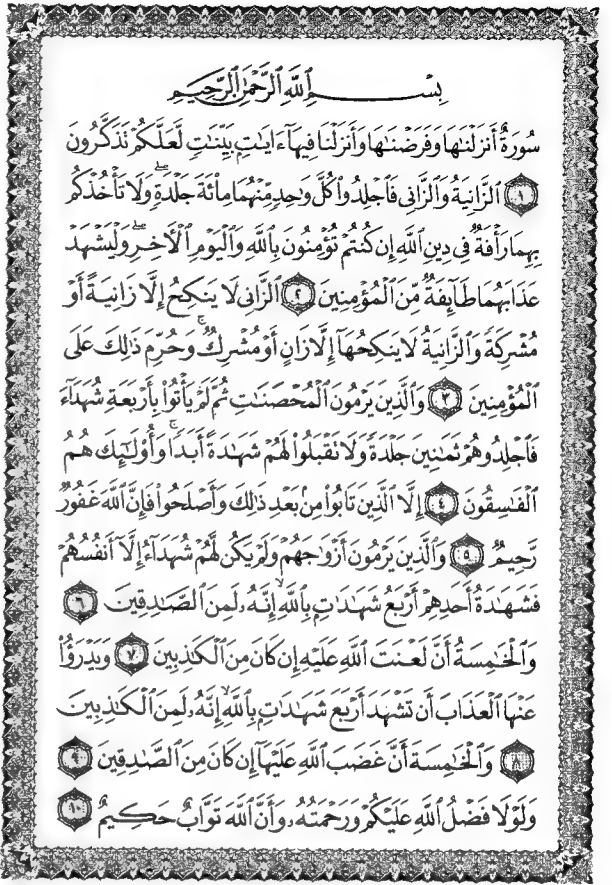 بِسْمِ اللَّهِ الرَّحْمَٰنِ الرَّحِيمِ
سُورَةٌ أَنزَلْنَٰهَا وَفَرَضْنَٰهَا وَأَنزَلْنَا فِيهَآ ءَايَٰتٍۭ بَيِّنَٰتٍ لَّعَلَّكُمْ تَذَكَّرُونَ
١ ٱلزَّانِيَةُ وَٱلزَّانِى فَٱجْلِدُوا۟ كُلَّ وَٰحِدٍ مِّنْهُمَا مِا۟ئَةَ جَلْدَةٍ ۖ وَلَا تَأْخُذْكُم
بِهِمَا رَأْفَةٌ فِى دِينِ ٱللَّهِ إِن كُنتُمْ تُؤْمِنُونَ بِٱللَّهِ وَٱلْيَوْمِ ٱلْءَاخِرِ ۖ وَلْيَشْهَدْ
عَذَابَهُمَا طَآئِفَةٌ مِّنَ ٱلْمُؤْمِنِينَ ٢ ٱلزَّانِى لَا يَنكِحُ إِلَّا زَانِيَةً أَوْ
مُشْرِكَةً وَٱلزَّانِيَةُ لَا يَنكِحُهَآ إِلَّا زَانٍ أَوْ مُشْرِكٌ ۚ وَحُرِّمَ ذَٰلِكَ عَلَى
ٱلْمُؤْمِنِينَ ٣ وَٱلَّذِينَ يَرْمُونَ ٱلْمُحْصَنَٰتِ ثُمَّ لَمْ يَأْتُوا۟ بِأَرْبَعَةِ شُهَدَآءَ
فَٱجْلِدُوهُمْ ثَمَٰنِينَ جَلْدَةً وَلَا تَقْبَلُوا۟ لَهُمْ شَهَٰدَةً أَبَدًا ۚ وَأُو۟لَٰٓئِكَ هُمُ
ٱلْفَٰسِقُونَ ٤ إِلَّا ٱلَّذِينَ تَابُوا۟ مِنۢ بَعْدِ ذَٰلِكَ وَأَصْلَحُوا۟ فَإِنَّ ٱللَّهَ غَفُورٌ
رَّحِيمٌ ٥ وَٱلَّذِينَ يَرْمُونَ أَزْوَٰجَهُمْ وَلَمْ يَكُن لَّهُمْ شُهَدَآءُ إِلَّآ أَنفُسُهُمْ
فَشَهَٰدَةُ أَحَدِهِمْ أَرْبَعُ شَهَٰدَٰتٍۭ بِٱللَّهِ ۙ إِنَّهُۥ لَمِنَ ٱلصَّٰدِقِينَ ٦
وَٱلْخَٰمِسَةُ أَنَّ لَعْنَتَ ٱللَّهِ عَلَيْهِ إِن كَانَ مِنَ ٱلْكَٰذِبِينَ ٧ وَيَدْرَؤُا۟
عَنْهَا ٱلْعَذَابَ أَن تَشْهَدَ أَرْبَعَ شَهَٰدَٰتٍۭ بِٱللَّهِ ۙ إِنَّهُۥ لَمِنَ ٱلْكَٰذِبِينَ
٨ وَٱلْخَٰمِسَةَ أَنَّ غَضَبَ ٱللَّهِ عَلَيْهَآ إِن كَانَ مِنَ ٱلصَّٰدِقِينَ ٩
وَلَوْلَا فَضْلُ ٱللَّهِ عَلَيْكُمْ وَرَحْمَتُهُۥ وَأَنَّ ٱللَّهَ تَوَّابٌ حَكِيمٌ ١٠